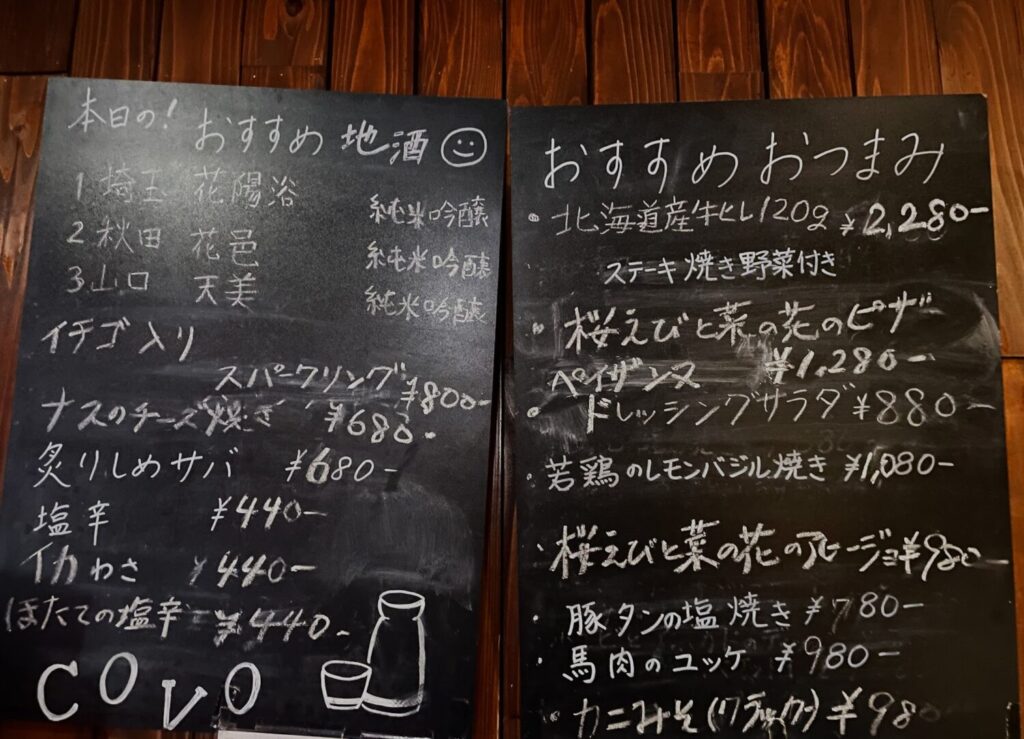 本日の! おすすめ 地酒
1 埼玉 花陽浴 純米吟醸
2 秋田 花邑 純米吟醸
3 山口 天美 純米吟醸
イチゴ入り
スパークリング ¥800-
ナスのチーズ焼き ¥680-
炙りしめサバ ¥680-
塩辛 ¥440-
イカわさ ¥440-
ほたての塩辛 ¥440-
COVO
おすすめおつまみ
・北海道産牛ヒレ120g ¥2,280-
ステーキ焼き野菜付き
・桜えびと菜の花のピザ
¥1,280-
ペイザンヌ
・ドレッシングサラダ ¥880-
・若鶏のレモンバジル焼き ¥1,080-
・桜えびと菜の花のアヒージョ ¥980-
・豚タンの塩焼き ¥780-
・馬肉のユッケ ¥980-
・カニみそ(クラック) ¥980